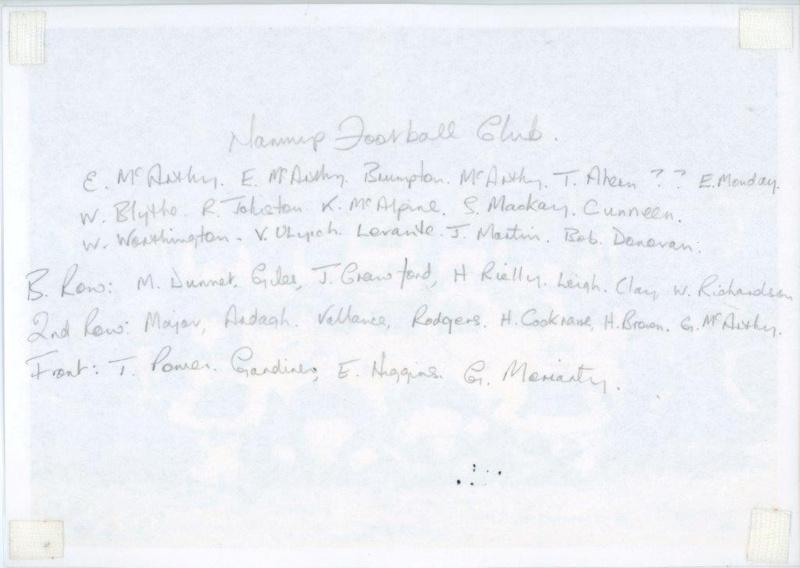 Nannup Football Club.
E. McArthy. E. McArthy. Brumpton. McArthy. T. Ahern ? ? E. Monday.
W. Blythe. R. Johston. K. McAlpine. S. Mackay. Cunneen.
W. Worthington. V. Ulyich. Levante. J. Martin. Bob. Donovan.
B. Row: M. Dunnet. Giles, J. Crawford, H Rielly. Leigh. Clay W. Richardson
2nd Row: Major, Ardagh. Vallance, Rodgers. H. Cockrane, H. Brown. G. McArthy.
Front: T. Power. Gardiner, E. Higgins. G. Moriarty.